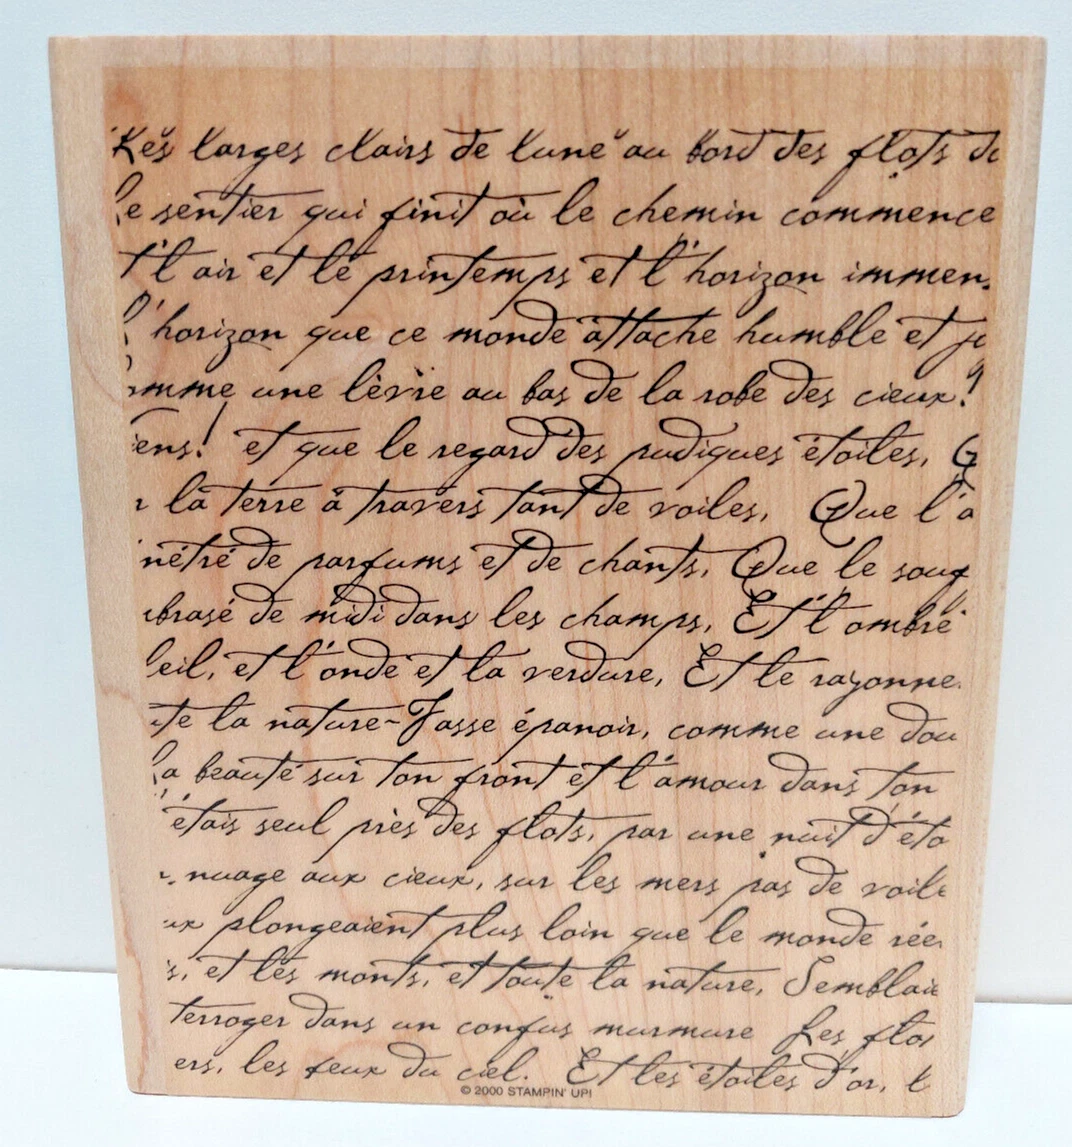 Les larges clairs de lune au bord des flots d
Le sentier qui finit où le chemin commence
t l'air et le printemps et l'horizon immen
l'horizon que ce monde attache humble et j
mme une lèvre au bas de la robe des cieux!
ens! et que le regard des pudiques étoiles, Q
la terre à travers tant de voiles, Que l'a
nétré de parfums et de chants, Que le souf
brasé de midi dans les champs, Et l'ombre
leil, et l'onde et la verdure, Et le rayonne
te la nature-Fasse épanouir, comme une dou
la beauté sur ton front et l'amour dans ton
'étais seul près des flots, par une nuit d'éto
nuage aux cieux, sur les mers pas de voile
ux plongeaient plus loin que le monde rée
s, et les monts, et toute la nature, Semblaie
terroger dans un confus murmure Les flo
ers, les feux du ciel. Et les étoiles d'or, l
© 2000 STAMPIN' UP!